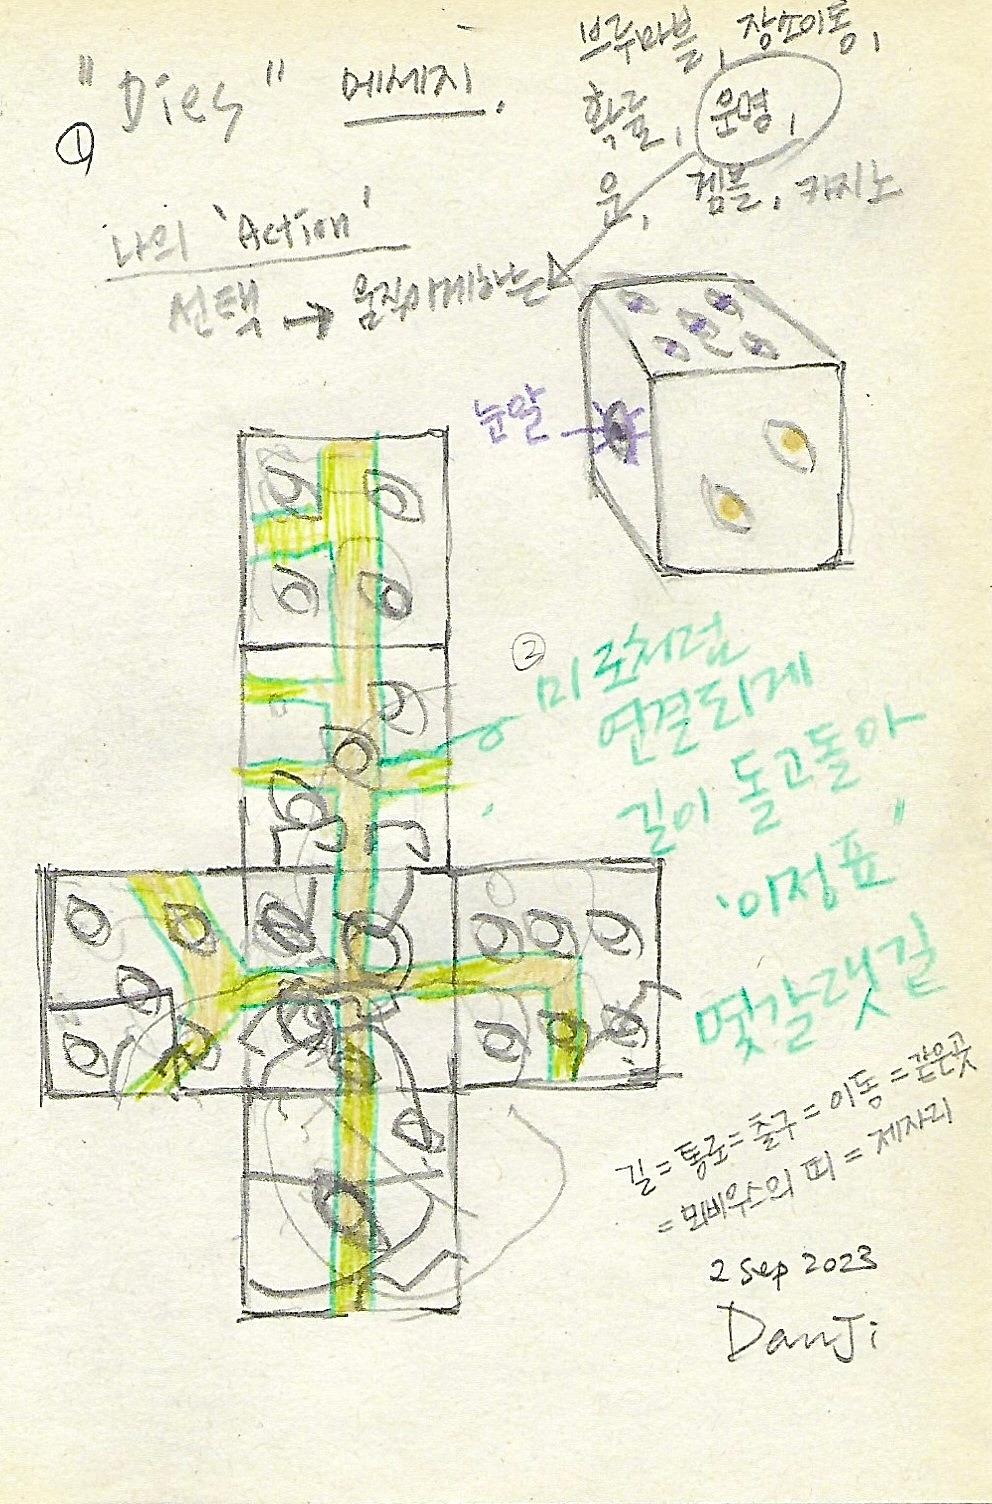 "Dies" 메세지.
①
브루마블, 장소이동,
확률, 운명,
운, 겜블, 카지노
나의 'Action'
선택 → 움직이게하는
눈알
② 미로처럼
연결되게
길이 돌고돌아
'이정표"
몇갈랫길
길=통로=출구=이동=같은곳
=뫼비우스의 띠=제자리
2 Sep 2023
DanJi